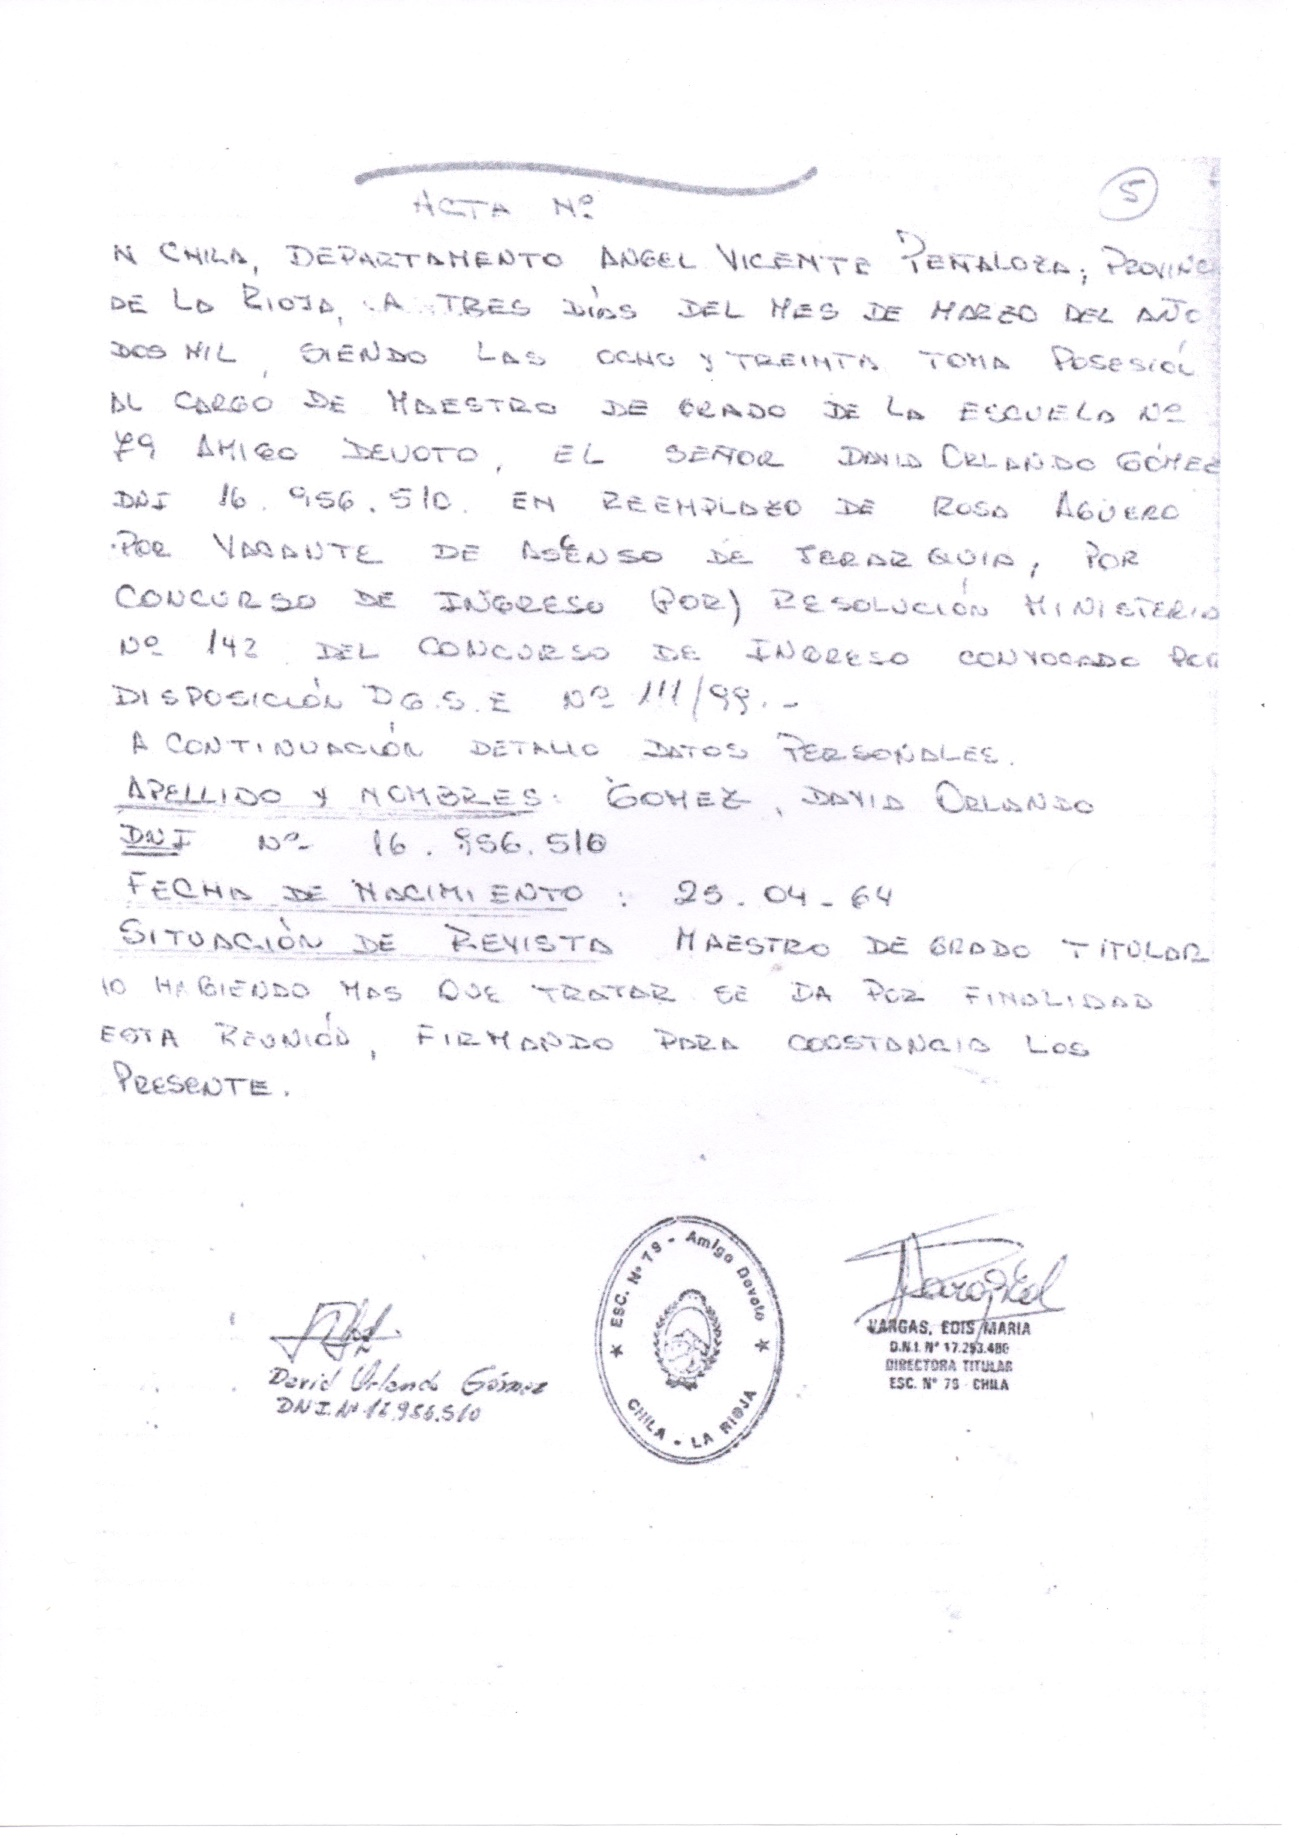 ACTA Nº
5
N CHILA, DEPARTAMENTO ANGEL VICENTE PEÑALOZA, PROVINC
DE LA RIOJA, A TRES DÍAS DEL MES DE MARZO DEL AÑO
DOS MIL, SIENDO LAS OCHO Y TREINTA TOMA POSESIÓ
AL CARGO DE MAESTRO DE GRADO DE LA ESCUELA Nº
79 AMIGO DEVOTO, EL SEÑOR DAVID ORLANDO GÓMEZ
DNI 16.956.510. EN REEMPLAZO DE ROSA AGÜERO
POR VACANTE DE ASCENSO DE JERARQUIA, POR
CONCURSO DE INGRESO (POR) RESOLUCIÓN MINISTERIA
Nº 142 DEL CONCURSO DE INGRESO CONVOCADO POR
DISPOSICIÓN D.G.S.E Nº 111/99.-
A CONTINUACIÓN DETALLO DATOS PERSONALES.
APELLIDO Y NOMBRES: GOMEZ, DAVID ORLANDO
DNI Nº 16.956.510
FECHA DE NACIMIENTO : 25-04-64
SITUACIÓN DE REVISTA MAESTRO DE GRADO TITULAR
O HABIENDO MAS QUE TRATAR SE DA POR FINALIDAD
ESTA REUNIÓN, FIRMANDO PARA COOSTANCIA LOS
PRESENTE.
David Orlando Gómez
DNI.Nº 16.956.510
ESC. Nº 79 - Amigo Devoto
CHILA - LA RIOJA
VARGAS, EDIS MARIA
D.N.I. Nº 17.293.480
DIRECTORA TITULAR
ESC. Nº 79 - CHILA